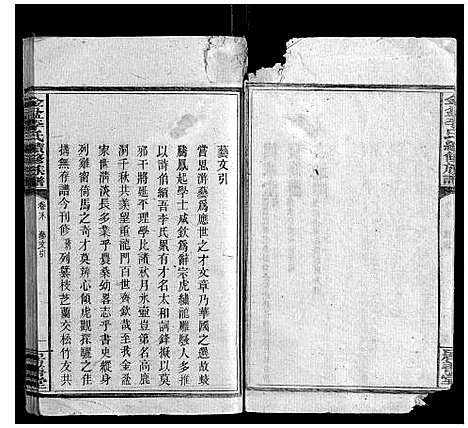 金盆李氏續修族譜
藝文引
嘗思游藝爲應世之才文章乃華國之選故蛟
騰鳳起學士咸欽爲辭宗虎繡龍雕騷人多推
詩伯緬吾李氏累有才名太和詞鋒擬以莫
邪干將延平理學比諸秋月氷壺豈第名高
洞千秋共羡望重龍門百世齊欽哉至我金盆
家世濟淡長多業乎農桑幼畧志乎書史縱身
列雞窗倚馬之奇才莫辨心傾虎觀探驪之佳
搆無存譜今刊修列纂枝芝蘭交松竹友共
金盆李氏續修族譜
卷外
藝文引